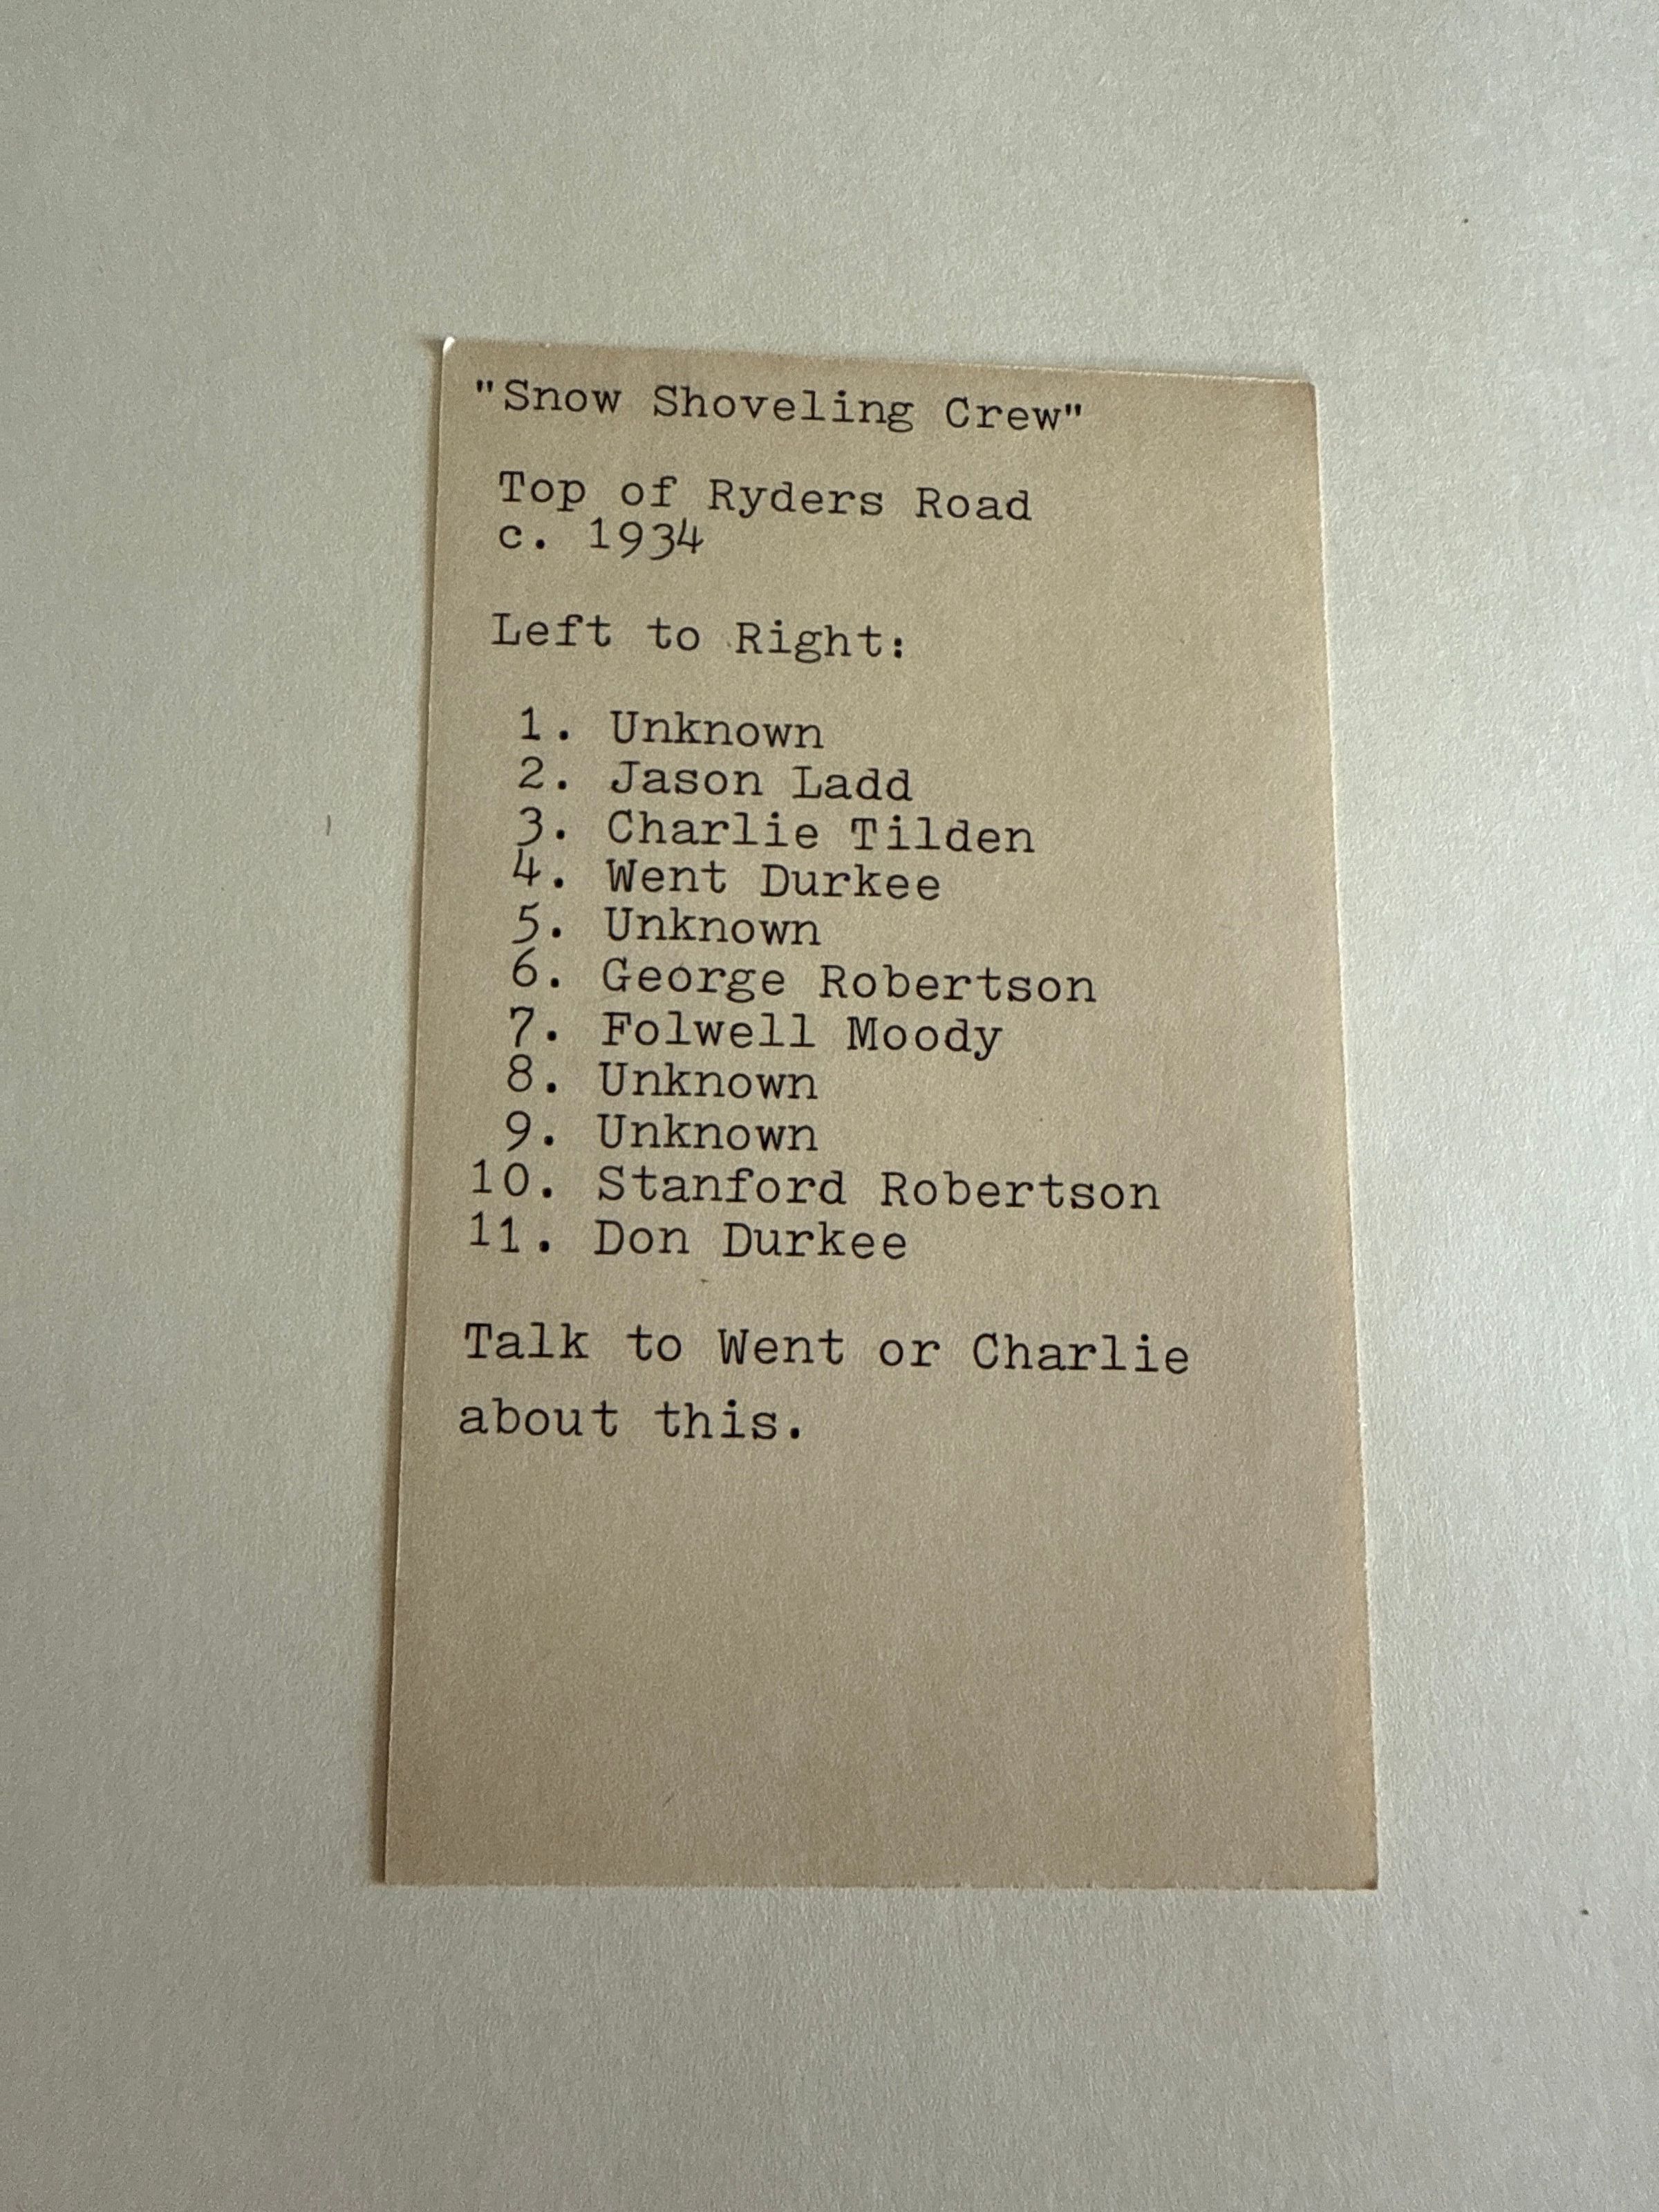 "Snow Shoveling Crew"
Top of Ryders Road
c. 1934
Left to Right:
1. Unknown
2. Jason Ladd
3. Charlie Tilden
4. Went Durkee
5. Unknown
6. George Robertson
7. Folwell Moody
8. Unknown
9. Unknown
10. Stanford Robertson
11. Don Durkee
Talk to Went or Charlie
about this.